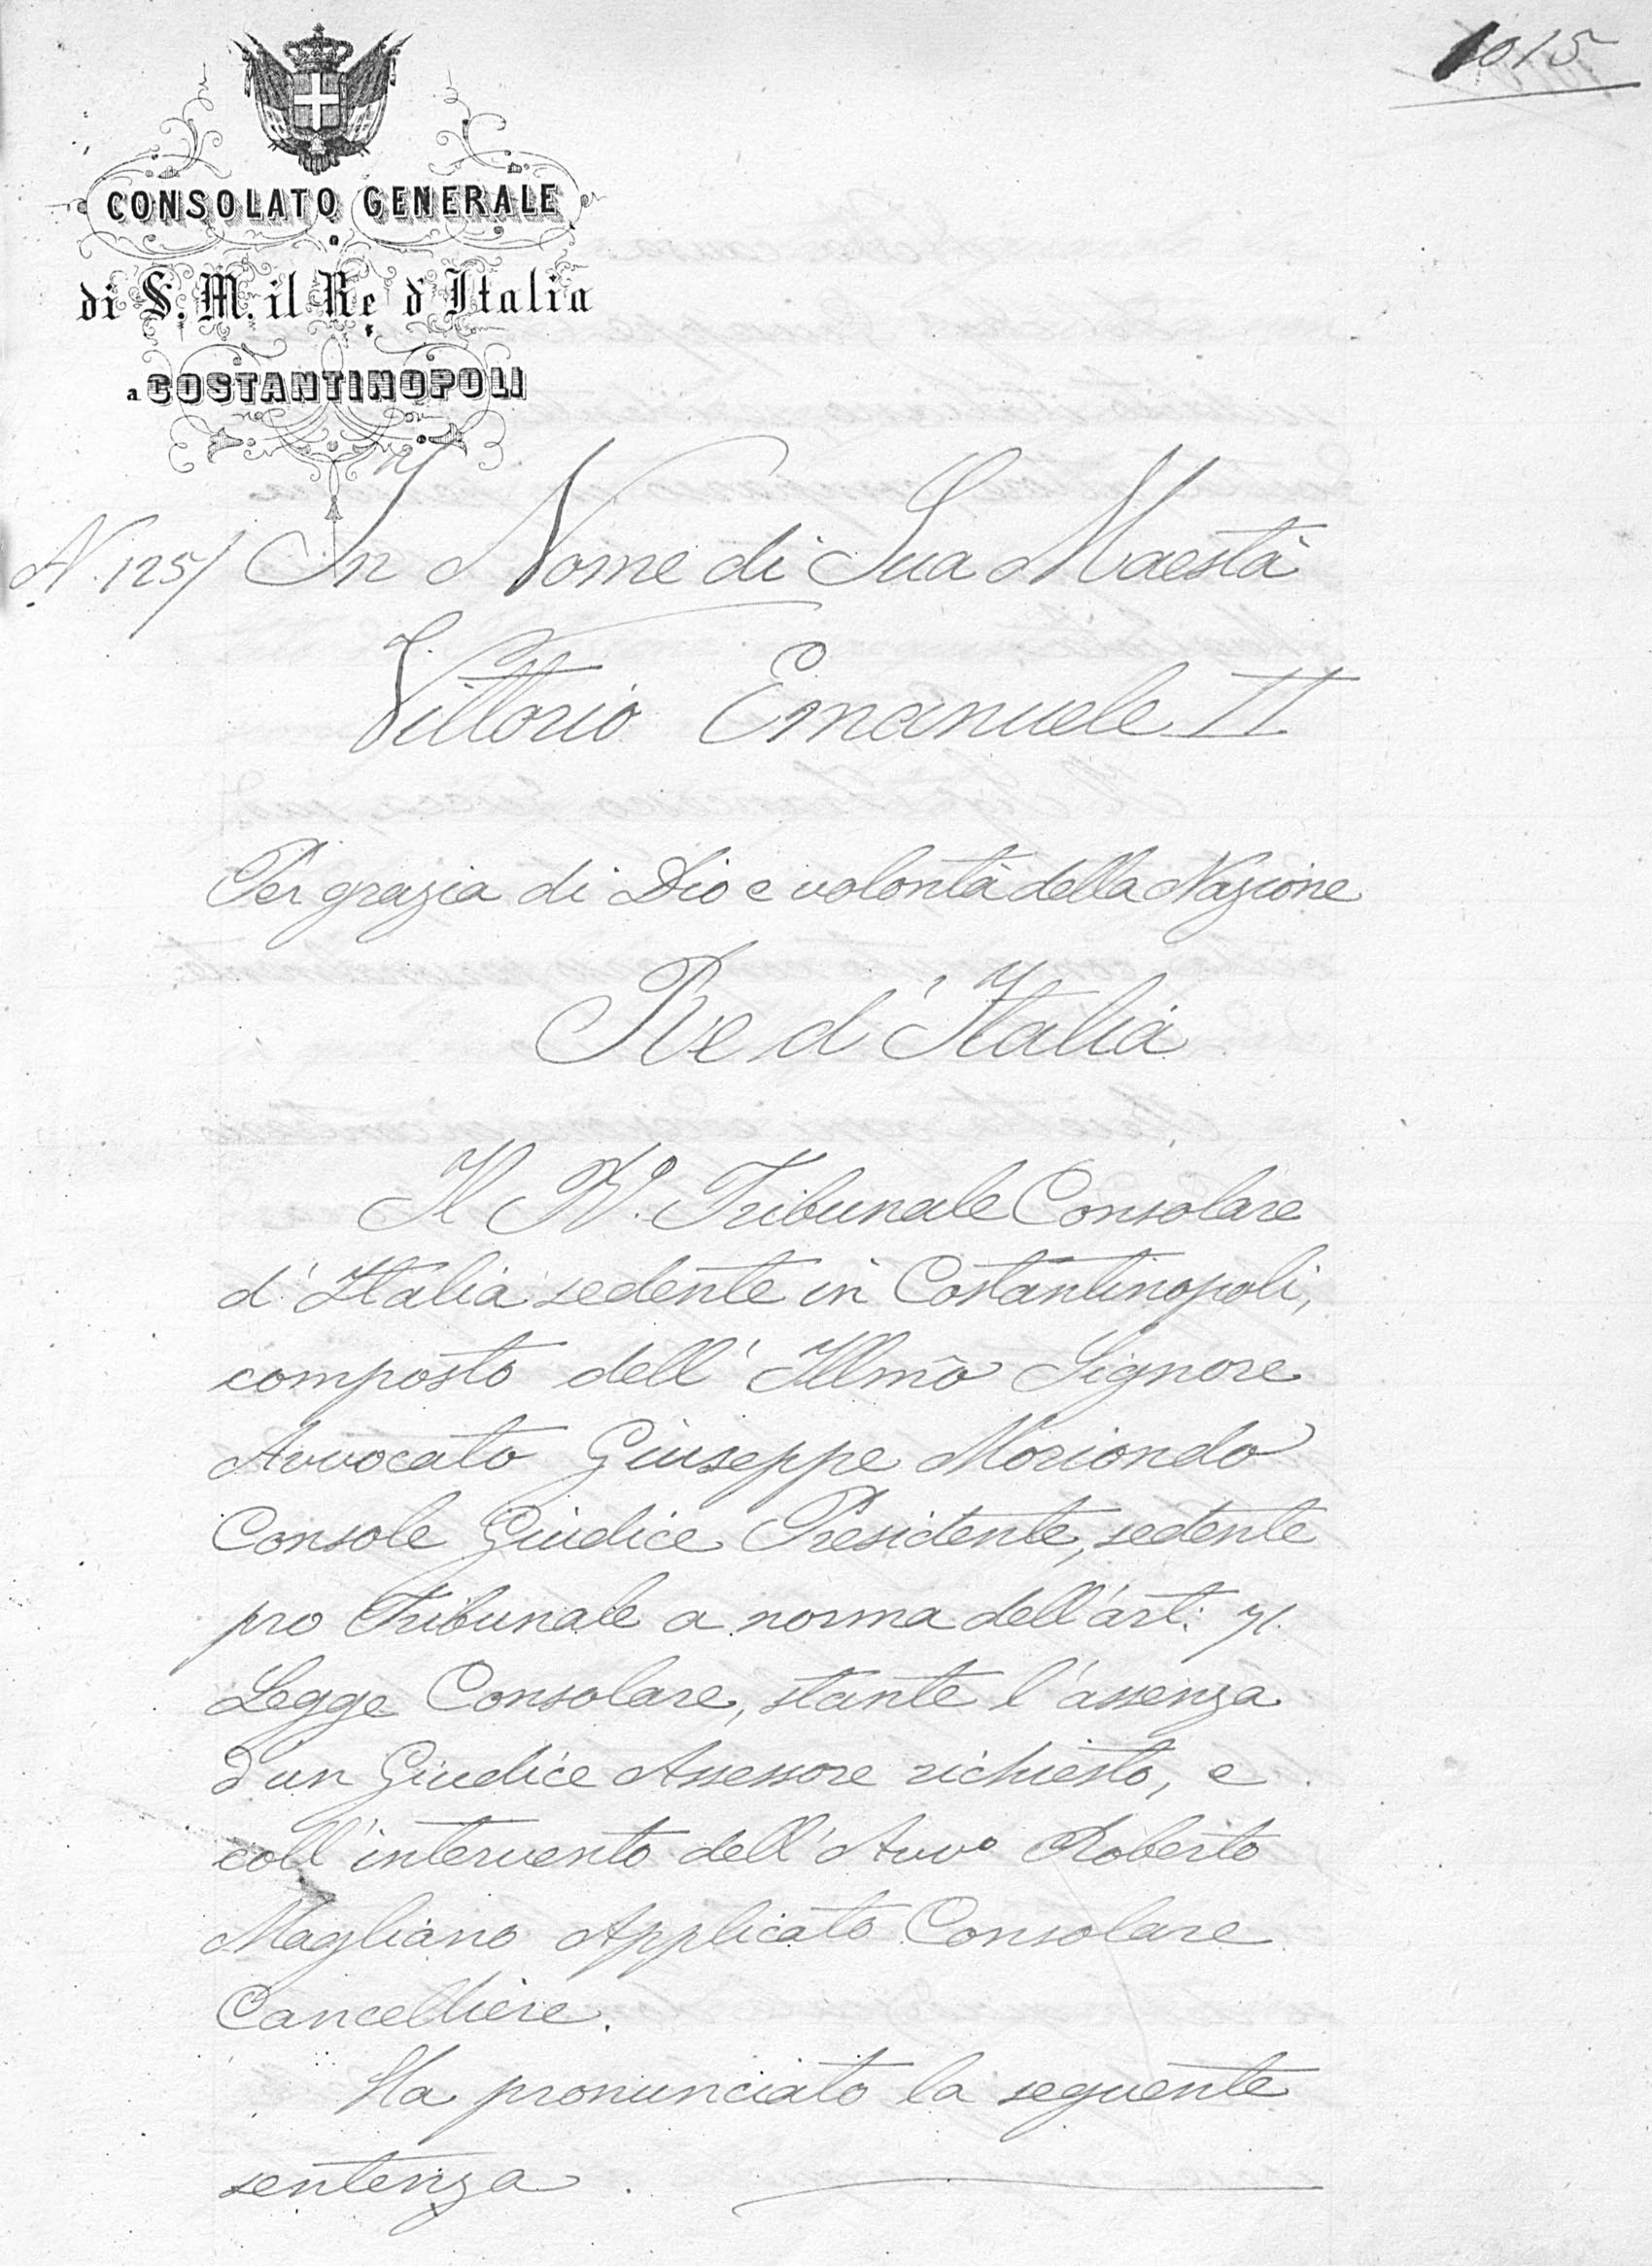 1015
CONSOLATO GENERALE
di S. M. il Re d'Italia
a COSTANTINOPOLI
N. 125/ In Nome di Sua Maestà
Vittorio Emanuele II
Per grazia di Dio e volontà della Nazione
Re d'Italia
Il R. Tribunale Consolare
d'Italia sedente in Costantinopoli,
composto dell' Illmo Signore
Avvocato Giuseppe Moriondo
Console Giudice Presidente, sedente
pro Tribunale a norma dell'art: 71.
Legge Consolare, stante l'assenza
d'un Giudice Assessore richiesto, e
coll'intervento dell'Avvo Roberto
Magliano Applicato Consolare
Cancelliere.
Ha pronunciato la seguente
sentenza.